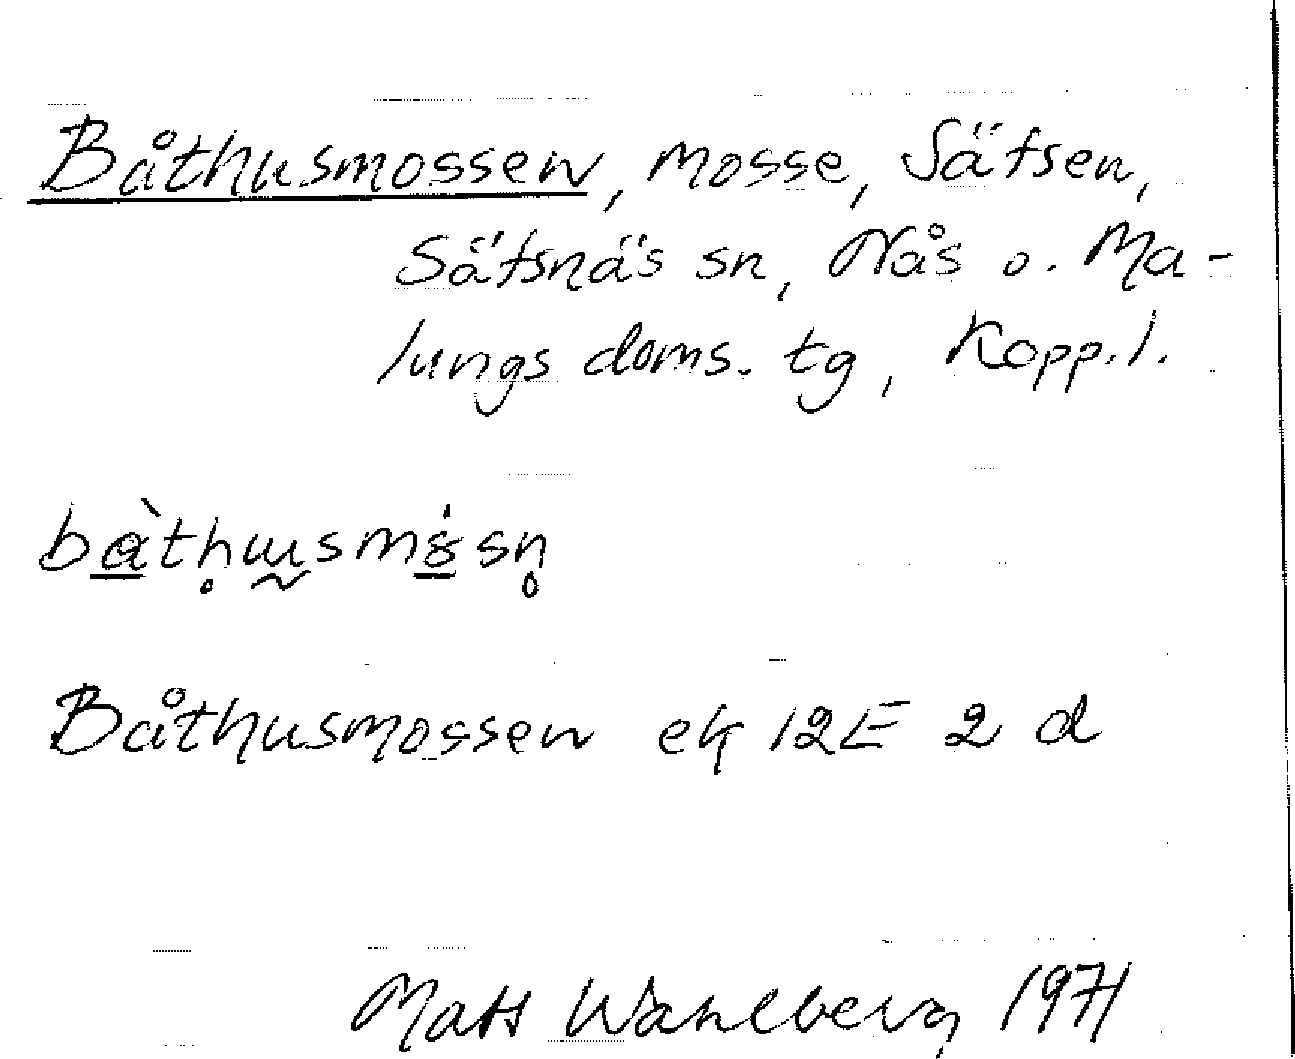 Båthusmossen, mosse, Säfsen,
Säfsnäs sn, Nås o. Ma-
lungs doms. tg, Kopp. l.
Båthusmossen ek 12E 2 d
Mats Wahlberg 1971